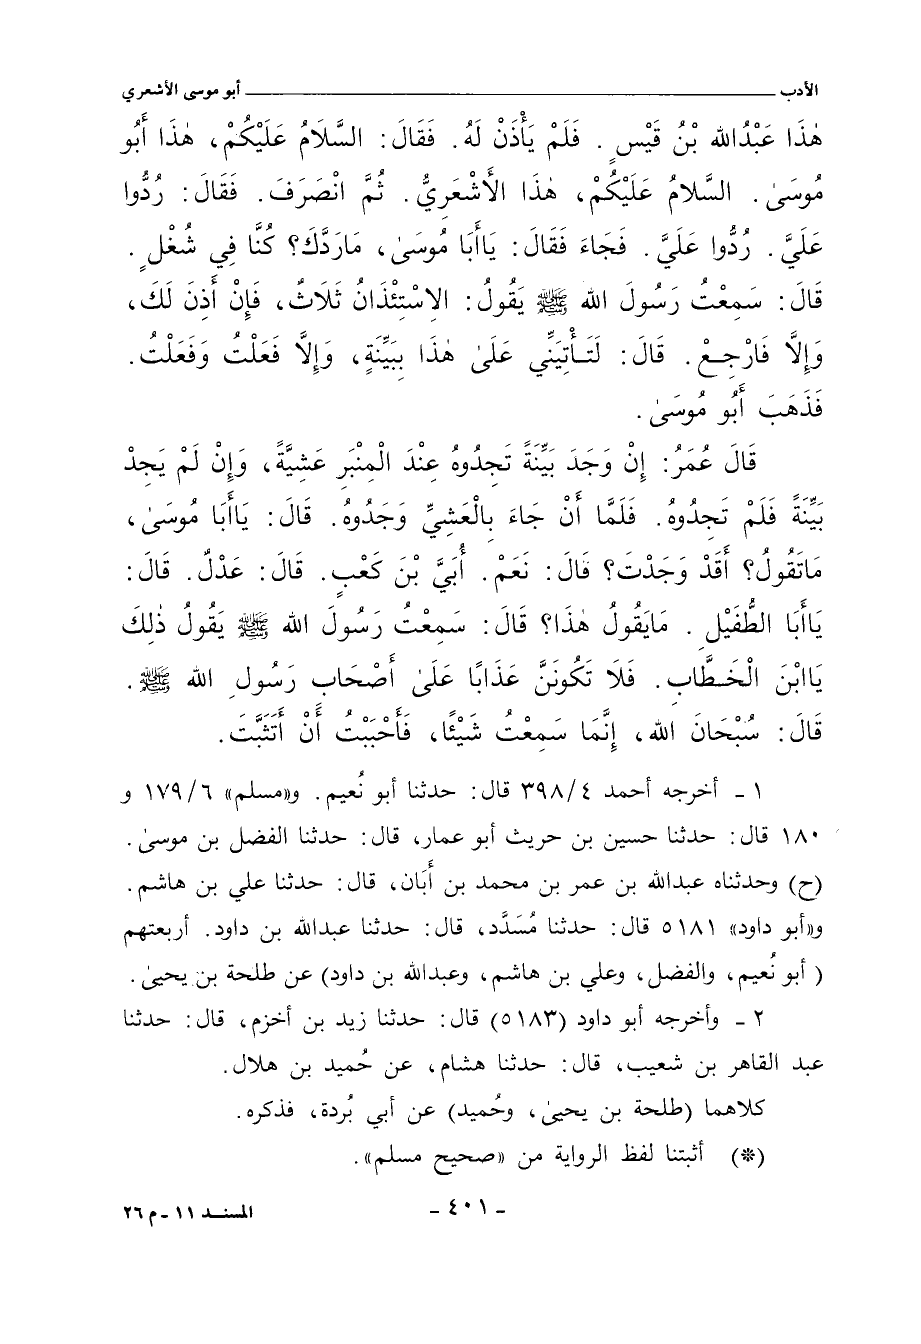 الأدب ــــــــــــ أبو موسى الأشعري
هٰذَا عَبْدُاللهِ بْنُ قَيْسٍ . فَلَمْ يَأْذَنْ لَهُ. فَقَالَ: السَّلَامُ عَلَيْكُمْ، هٰذَا أَبُو
مُوسَىٰ. السَّلامُ عَلَيْكُمْ، هٰذَا الأَشْعَرِيُّ. ثُمَّ انْصَرَفَ. فَقَالَ: رُدُّوا
عَلَيَّ. رُدُّوا عَلَيَّ. فَجَاءَ فَقَالَ: يَاأَبَا مُوسَىٰ، مَارَدَّكَ؟ كُنَّا فِي شُغْلٍ .
قَالَ: سَمِعْتُ رَسُولَ اللهِ ﷺ يَقُولُ: الاسْتِئْذَانُ ثَلَاثٌ، فَإِنْ أُذِنَ لَكَ،
وَإِلَّا فَارْجِعْ. قَالَ: لَتَأْتِيَنِّي عَلَىٰ هٰذَا بِبَيِّنَةٍ، وَإِلَّا فَعَلْتُ وَفَعَلْتُ.
فَذَهَبَ أَبُو مُوسَىٰ.
قَالَ عُمَرُ: إِنْ وَجَدَ بَيِّنَةً تَجِدُوهُ عِنْدَ الْمِنْبَرِ عَشِيَّةً، وَإِنْ لَمْ يَجِدْ
بَيِّنَةً فَلَمْ تَجِدُوهُ. فَلَمَّا أَنْ جَاءَ بِالْعَشِيِّ وَجَدُوهُ. قَالَ: يَاأَبَا مُوسَىٰ،
مَاتَقُولُ؟ أَقَدْ وَجَدْتَ؟ قَالَ: نَعَمْ. أُبَيَّ بْنَ كَعْبٍ. قَالَ: عَدْلٌ. قَالَ:
يَاأَبَا الطُّفَيْلِ . مَايَقُولُ هٰذَا؟ قَالَ: سَمِعْتُ رَسُولَ اللهِ ﷺ يَقُولُ ذٰلِكَ
يَاابْنَ الْخَطَّابِ. فَلَا تَكُونَنَّ عَذَابًا عَلَىٰ أَصْحَابِ رَسُولِ اللهِ ﷺ.
قَالَ: سُبْحَانَ اللهِ، إِنَّمَا سَمِعْتُ شَيْئًا، فَأَحْبَبْتُ أَنْ أَتَثَبَّتَ.
١ - أخرجه أحمد ٣٩٨/٤ قال: حدثنا أبو نُعيم. و«مسلم» ١٧٩/٦ و
١٨٠ قال: حدثنا حسين بن حريث أبو عمار، قال: حدثنا الفضل بن موسىٰ.
(ح) وحدثناه عبدالله بن عمر بن محمد بن أَبَان، قال: حدثنا علي بن هاشم.
و«أبو داود» ٥١٨١ قال: حدثنا مُسَدَّد، قال: حدثنا عبدالله بن داود. أربعتهم
( أبو نُعيم، والفضل، وعلي بن هاشم، وعبدالله بن داود) عن طلحة بن يحيىٰ.
٢ - وأخرجه أبو داود (٥١٨٣) قال: حدثنا زيد بن أخزم، قال: حدثنا
عبد القاهر بن شعيب، قال: حدثنا هشام، عن حُميد بن هلال.
كلاهما (طلحة بن يحيىٰ، وحُميد) عن أبي بُردة، فذكره.
(*) أثبتنا لفظ الرواية من «صحيح مسلم».
- ٤٠١ - المسند ١١ - م ٢٦